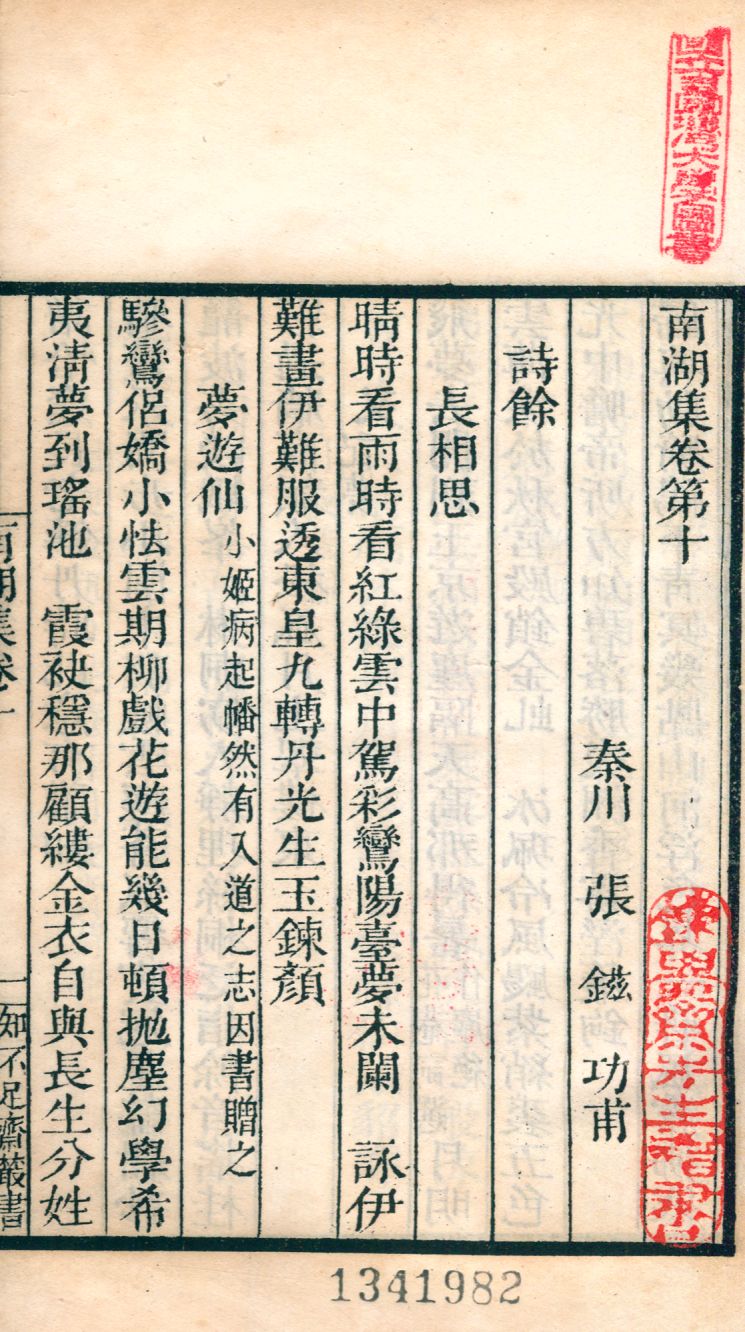 南湖集卷第十
秦川　張　鎡　功甫
詩餘
長相思
晴時看雨時看紅綠雲中駕彩鸞陽臺夢未闌　詠伊
難畫伊難服透東皇九轉丹光生玉鍊顏
夢遊仙小姬病起幡然有入道之志因書贈之
驂鸞侶嬌小怯雲期柳戲花遊能幾日頓拋塵幻學希
夷淸夢到瑤池　霞袂穩那顧縷金衣自與長生分姓
南湖集卷十
一
知不足齋叢書
1341982